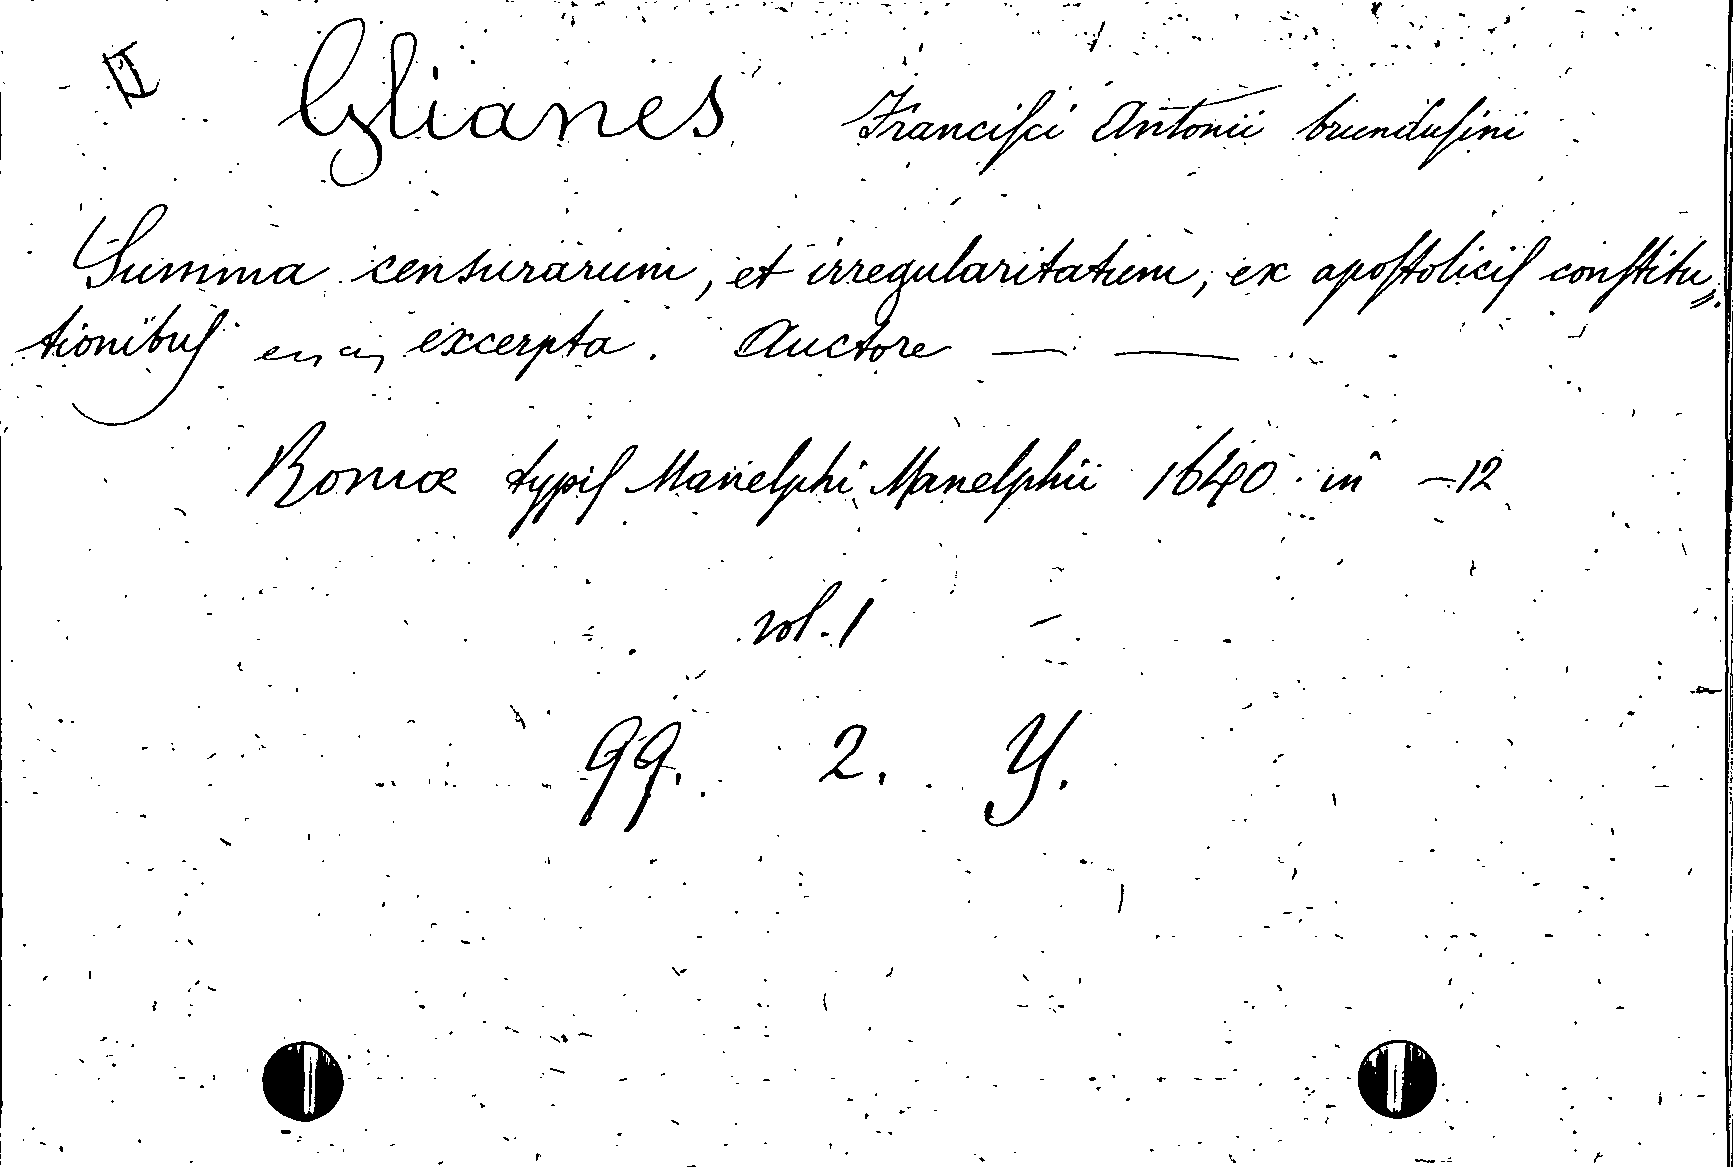 Glianes Franciſci Antonii brunduſini
Summa censurarum, et irregularitatum, ex apoſtoliciſ conſtitu„
tionibuſ excerpta. Auctore — —
Romæ typiſ Manelphi Manelphii 1640 in -12
vol. 1
99. 2. Y.